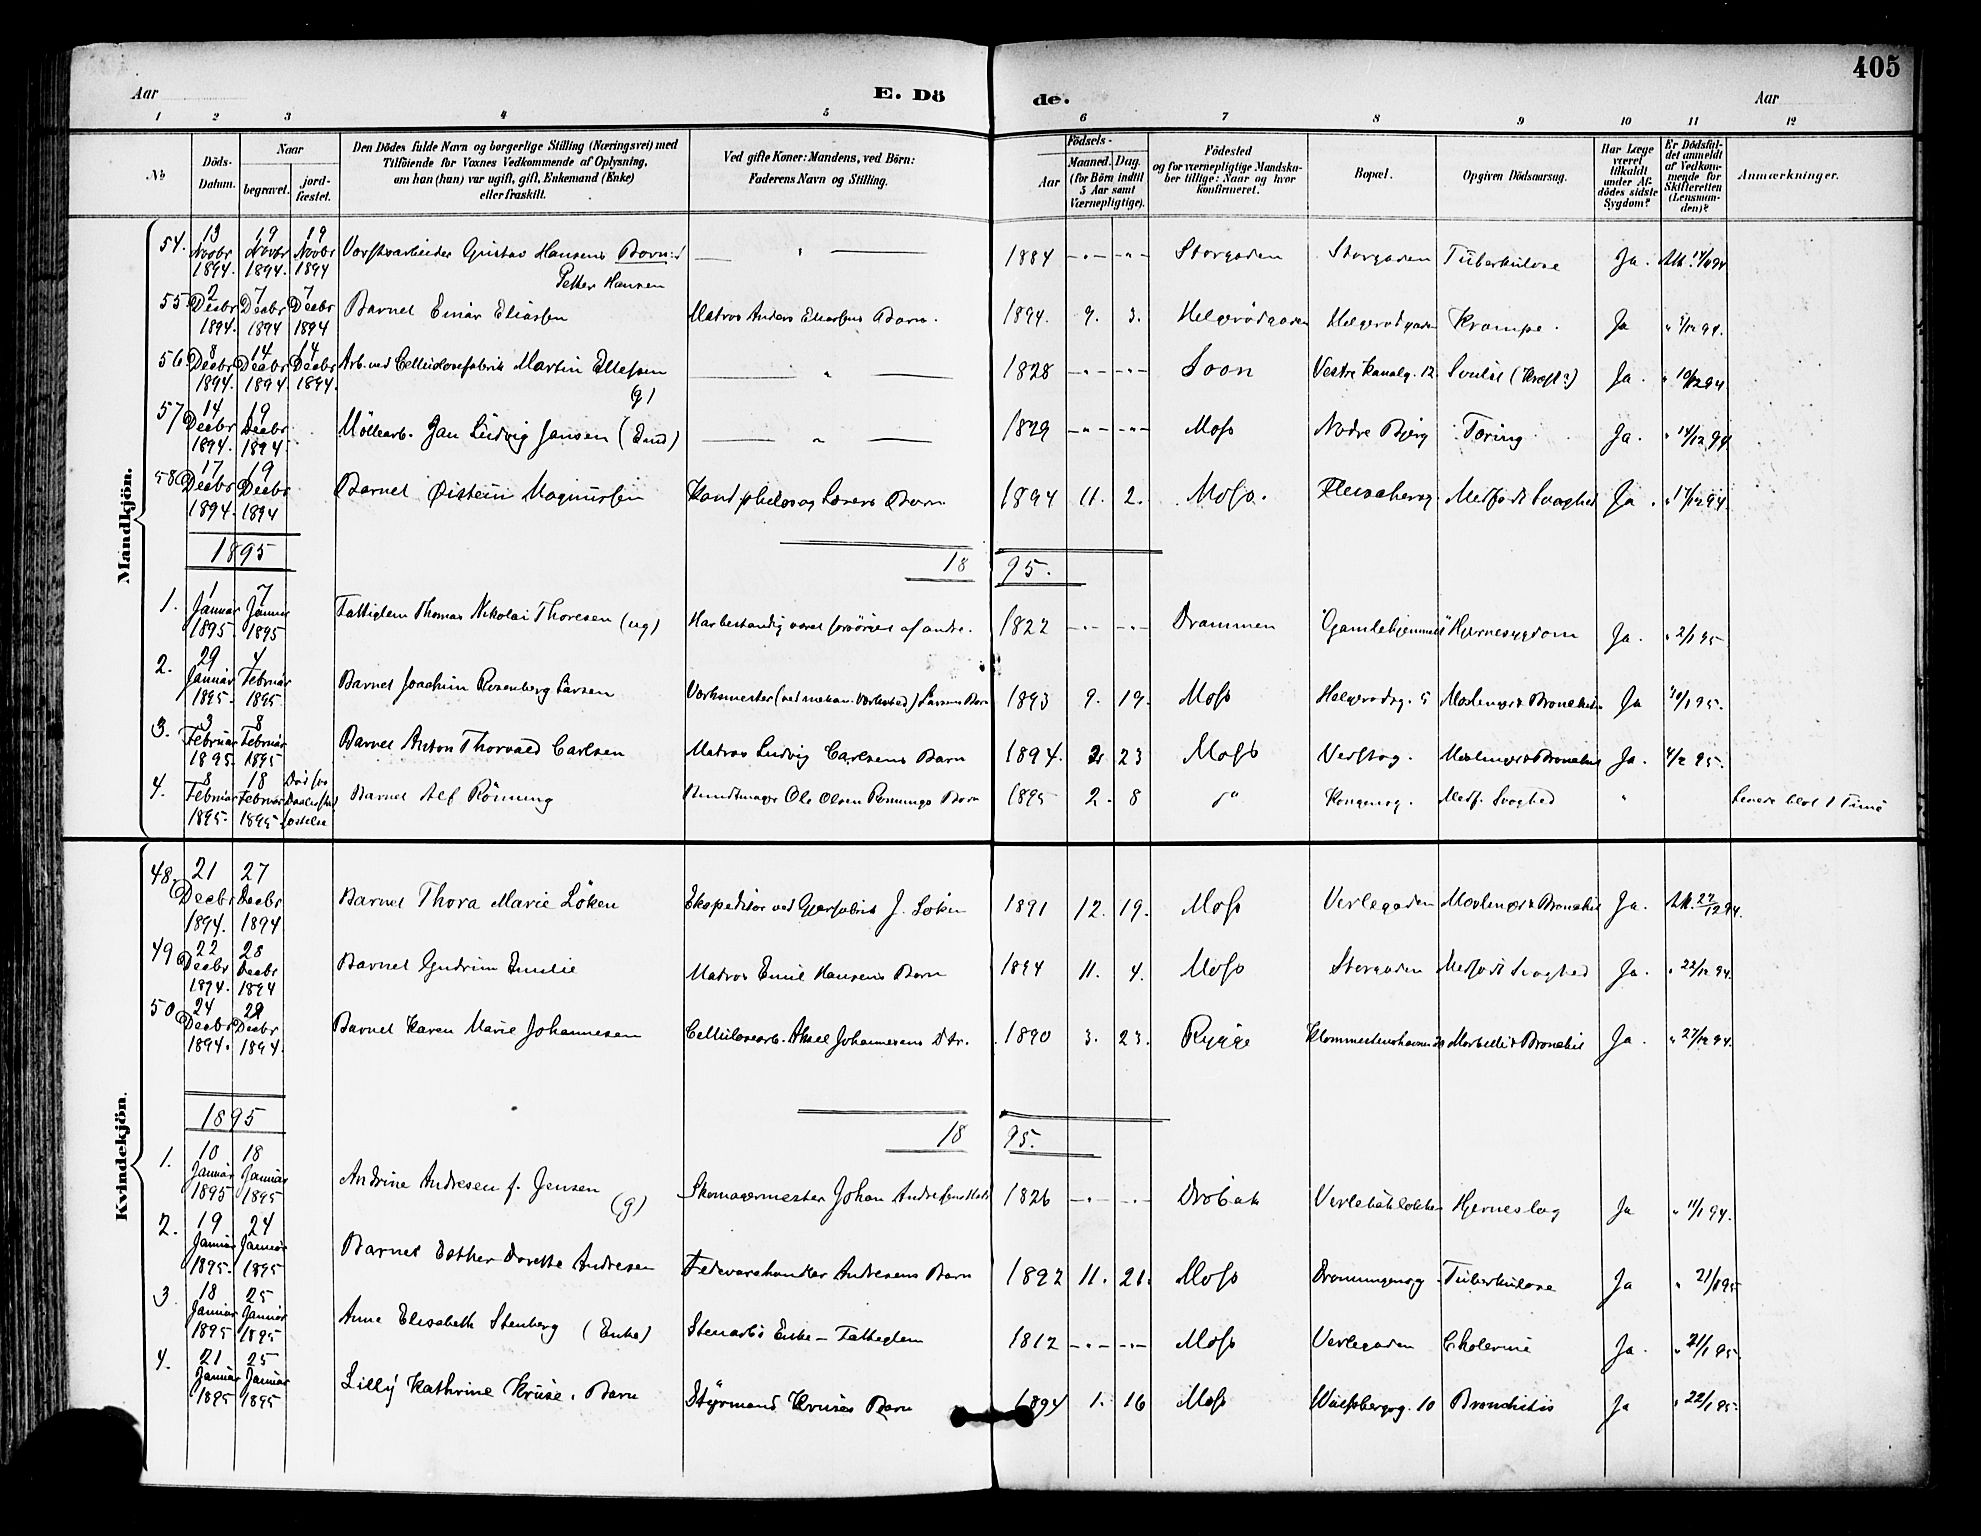 405
Aar E. Dö de. Aar
1 2 3 4 5 6 7 8 9 10 11 12
No Döds-Datum. Naar begravet. jordfæstet. Den Dödes fulde Navn og borgerlige Stilling (Næringsvei) med Tilföiende for Voxnes Vedkommende af Oplysning, om han (hun) var ugift, gift, Enkemand (Enke) eller fraskilt. Ved gifte Koner: Mandens, ved Börn: Faderens Navn og Stilling. Födsels- Aar Maaned. Dag. (for Börn indtil 5 Aar samt Værnepligtige). Födested og for værnepligtige Mandskaber tillige: Naar og hvor konfirmeret. Bopæl. Opgiven Dödsaarsag. Har Læge været tilkaldt under Afdödes sidste Sygdom? Er Dödsfaldet anmeldt af Vedkommende for Skifteretten (Lensmanden)? Anmærkninger.
Mandkjön.
54. 13 Novbr 1894. 19 Novbr 1894. 19 Novbr 1894 Gustav Hansens Barn: Petter Hansen 1884 Storgaden Storgaden Tuberkulose Ja.
55 2 Decbr 1894. 7 Decbr 1894 7 Decbr 1894 Barnet Einar Eliassen Matros Anders Eliassens Barn. 1894. 9. 3. Helgerødgaden Helgerødgaden Krampe. Ja
56. 8 Decbr 1894. 14 Decbr 1894. 14 Decbr 1894. Arb. ved Cellulosefabrik Martin Ellefsen (g) 1828 Soon Vestre Kanalg. 12. (Kræft?) Ja. " 10/12 94
57 14 Decbr 1894. 19 Decbr 1894 Möllearb. Jan Ludvig Jansen (Enk) 1829 Moss Nodre Bjerg Tæring Ja. " 14/12 94
58 17 Decbr 1894. 19 Decbr 1894 Barnet Øistein Magnussen Barn 1894 11. 2. Moss. Medfødt Svaghed Ja. " 17/12 94.
1895 18 95.
1. 1 Januar 1895 7 Januar 1895 Fattiglem Thomas Nikolai Thoresen (ug) Har bestandig været forsörget af andre. 1822 Drammen "Gamlehjemmet" Hjernesygdom Ja. " 2/1 95
2. 29 Januar 1895. 4 Februar 1895. Barnet Joachim Rosenberg Larsen Larsens Barn 1893 9. 19. Moss Helgerødg. 5 Meslinger & Bronchit Ja 30/1 95.
3. 3 Februar 1895 8 Februar 1895 Barnet Anton Thorvald Carlsen Matros Ludvig Carlsens Barn 1894. 2 23 Moss Meslinger & Bronchit Ja. 4/2 95.
4. 8 Februar 1895. 18 Februar 1895 Barnet Alf Rönning Bundtmager Ole Olsen Rönnings Barn 1895 2. 8 do Kongensg. Medf. Svaghed " Levede blot 1 Time
Kvindekjön.
48. 21 Decbr 1894. 27 Decbr 1894 Barnet Thora Marie Löken Ekspeditör ved J. Löken 1891 12. 19. Moss Verlegaden Meslinger & Bronchit Ja. 22/12 94.
49 22 Decbr 1894. 28 Decbr 1894 Barnet Gudrun Emilie Matros Emil Hansens Barn 1894 11. 4. Moss Storgaden Medfødt Svaghed Ja. " 22/12 94.
50 24 Decbr 1894. 29 Decbr 1894. Barnet Karen Marie Johannesen Cellulosearb. Aksel Johannesens Dtr. 1890 3. 23. Rygge & Bronchit Ja. " 27/12 94.
1895 18 95.
1. 10 Januar 1895 18 Januar 1895 Andrine Andresen f. Jensen (g) Skomagermester Johan Andresens 1826 Dröbak Hjerneslag Ja " 11/1 94.
2. 19 Januar 1895. 24 Januar 1895 Barnet Esther Dorette Andresen Fedevarehandler Andresens Barn 1892 11. 21. Moss Dronningensg. Tuberkulose Ja " 21/1 95
3. 18 Januar 1895 25 Januar 1895 Anne Elisabeth Stenberg (Enke) Stenarbs Enke - Fattiglem 1812 Moss Verlegaden Cholerine Ja. " 21/1 95.
4. 21 Januar 1895 25 Januar 1895 Lilly Kathrine Kruse. Barn Styrmand Kruses Barn 1894 1. 16 Moss Wulfsbergsg. 10 Bronchitis Ja " 22/1 95.